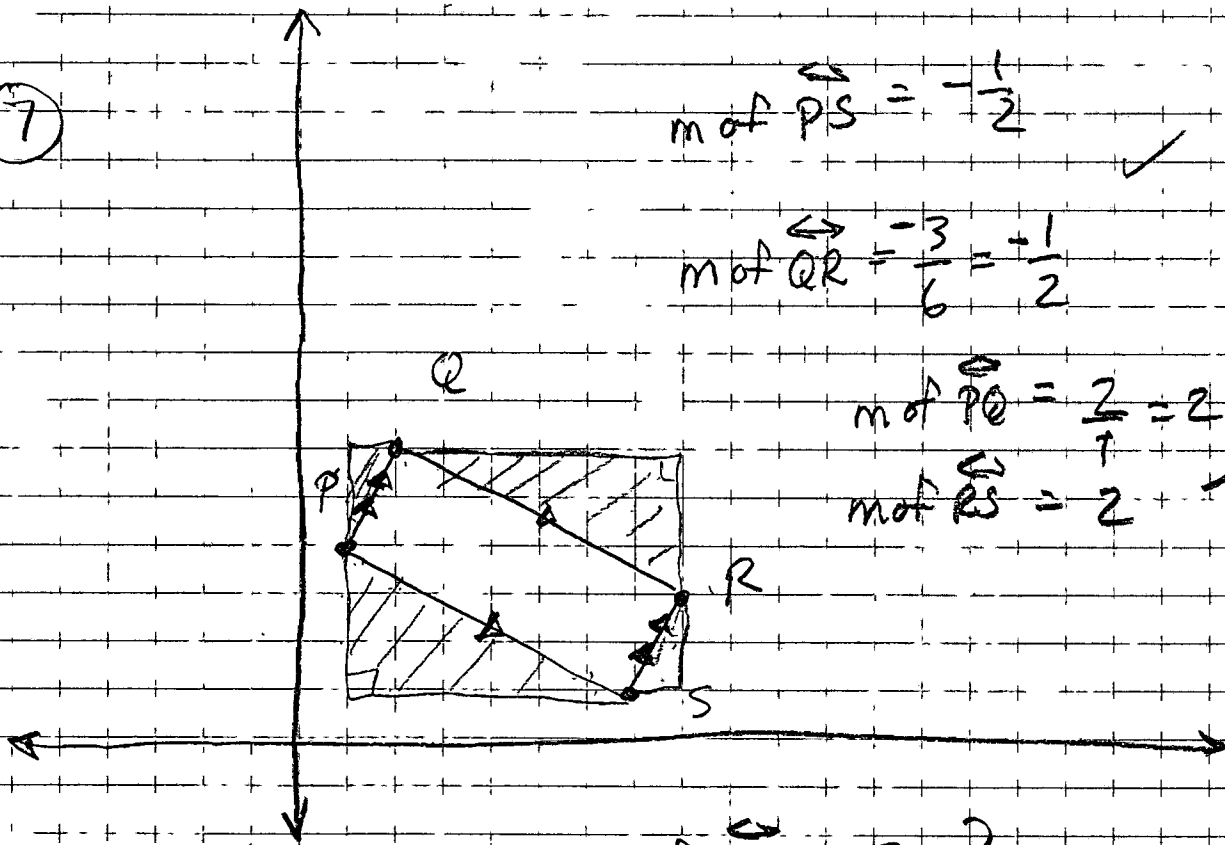 7
m of PS = -1/2 ✓
m of QR = -3/6 = -1/2
Q
m of PQ = 2/1 = 2
P
m of RS = 2
R
S